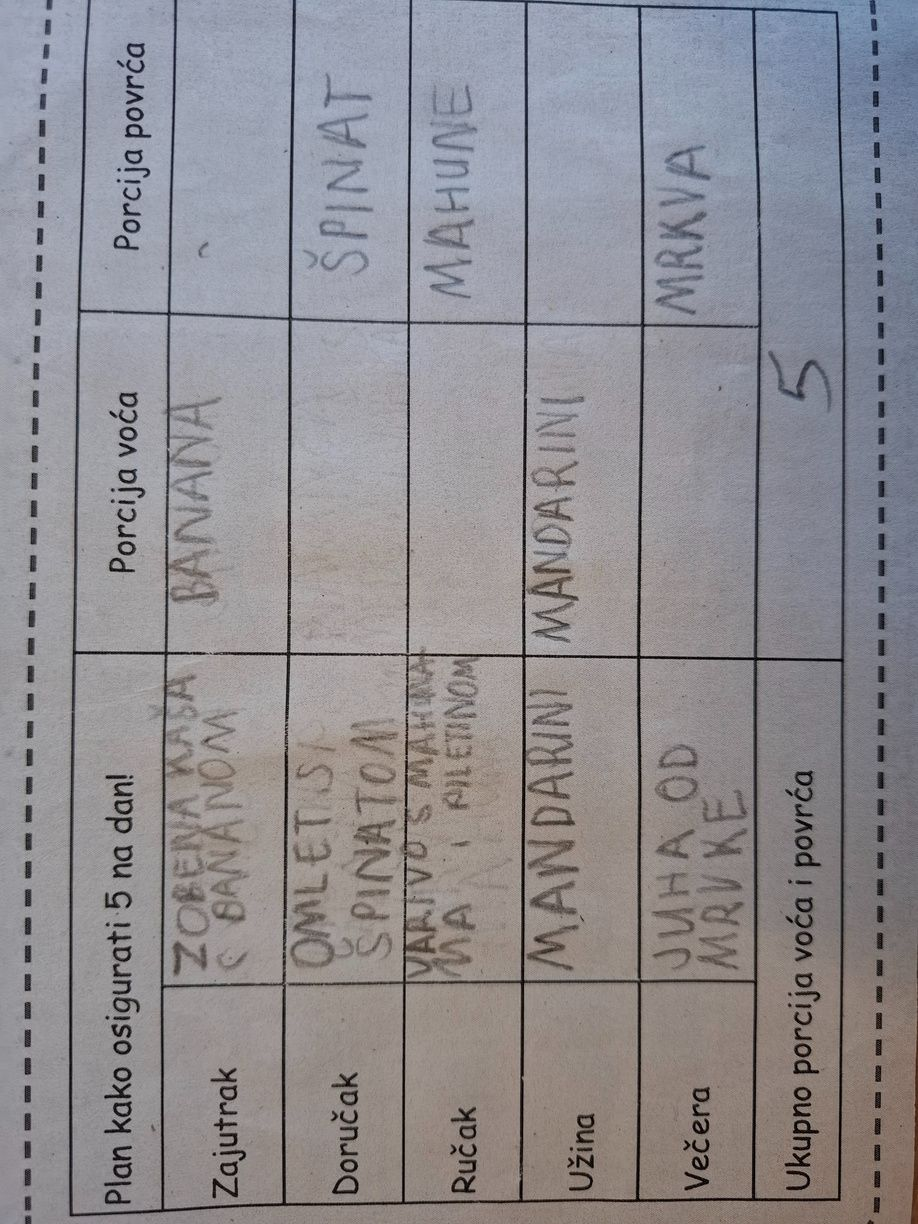 Plan kako osigurati 5 na dan! Porcija voća Porcija povrća
Zajutrak
ZOBENA KAŠA
S BANANOM
BANANA
Doručak
OMLET SA
ŠPINATOM
ŠPINAT
Ručak
VARIVO S MAHUNA-
MA I PILETINOM
MAHUNE
Užina
MANDARINI
MANDARINI
Večera
JUHA OD
MRVKE
MRKVA
Ukupno porcija voća i povrća 5